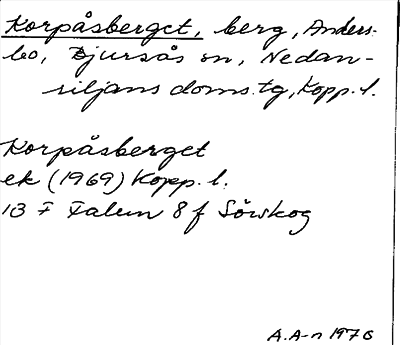 Korpåsberget, berg, Anders-
bo, Bjursås sn, Nedan-
siljans doms.tg, Kopp. l.
Korpåsberget
ek (1969) Kopp. l.
13 F Falun 8 f Sörskog
A.A-n 1976